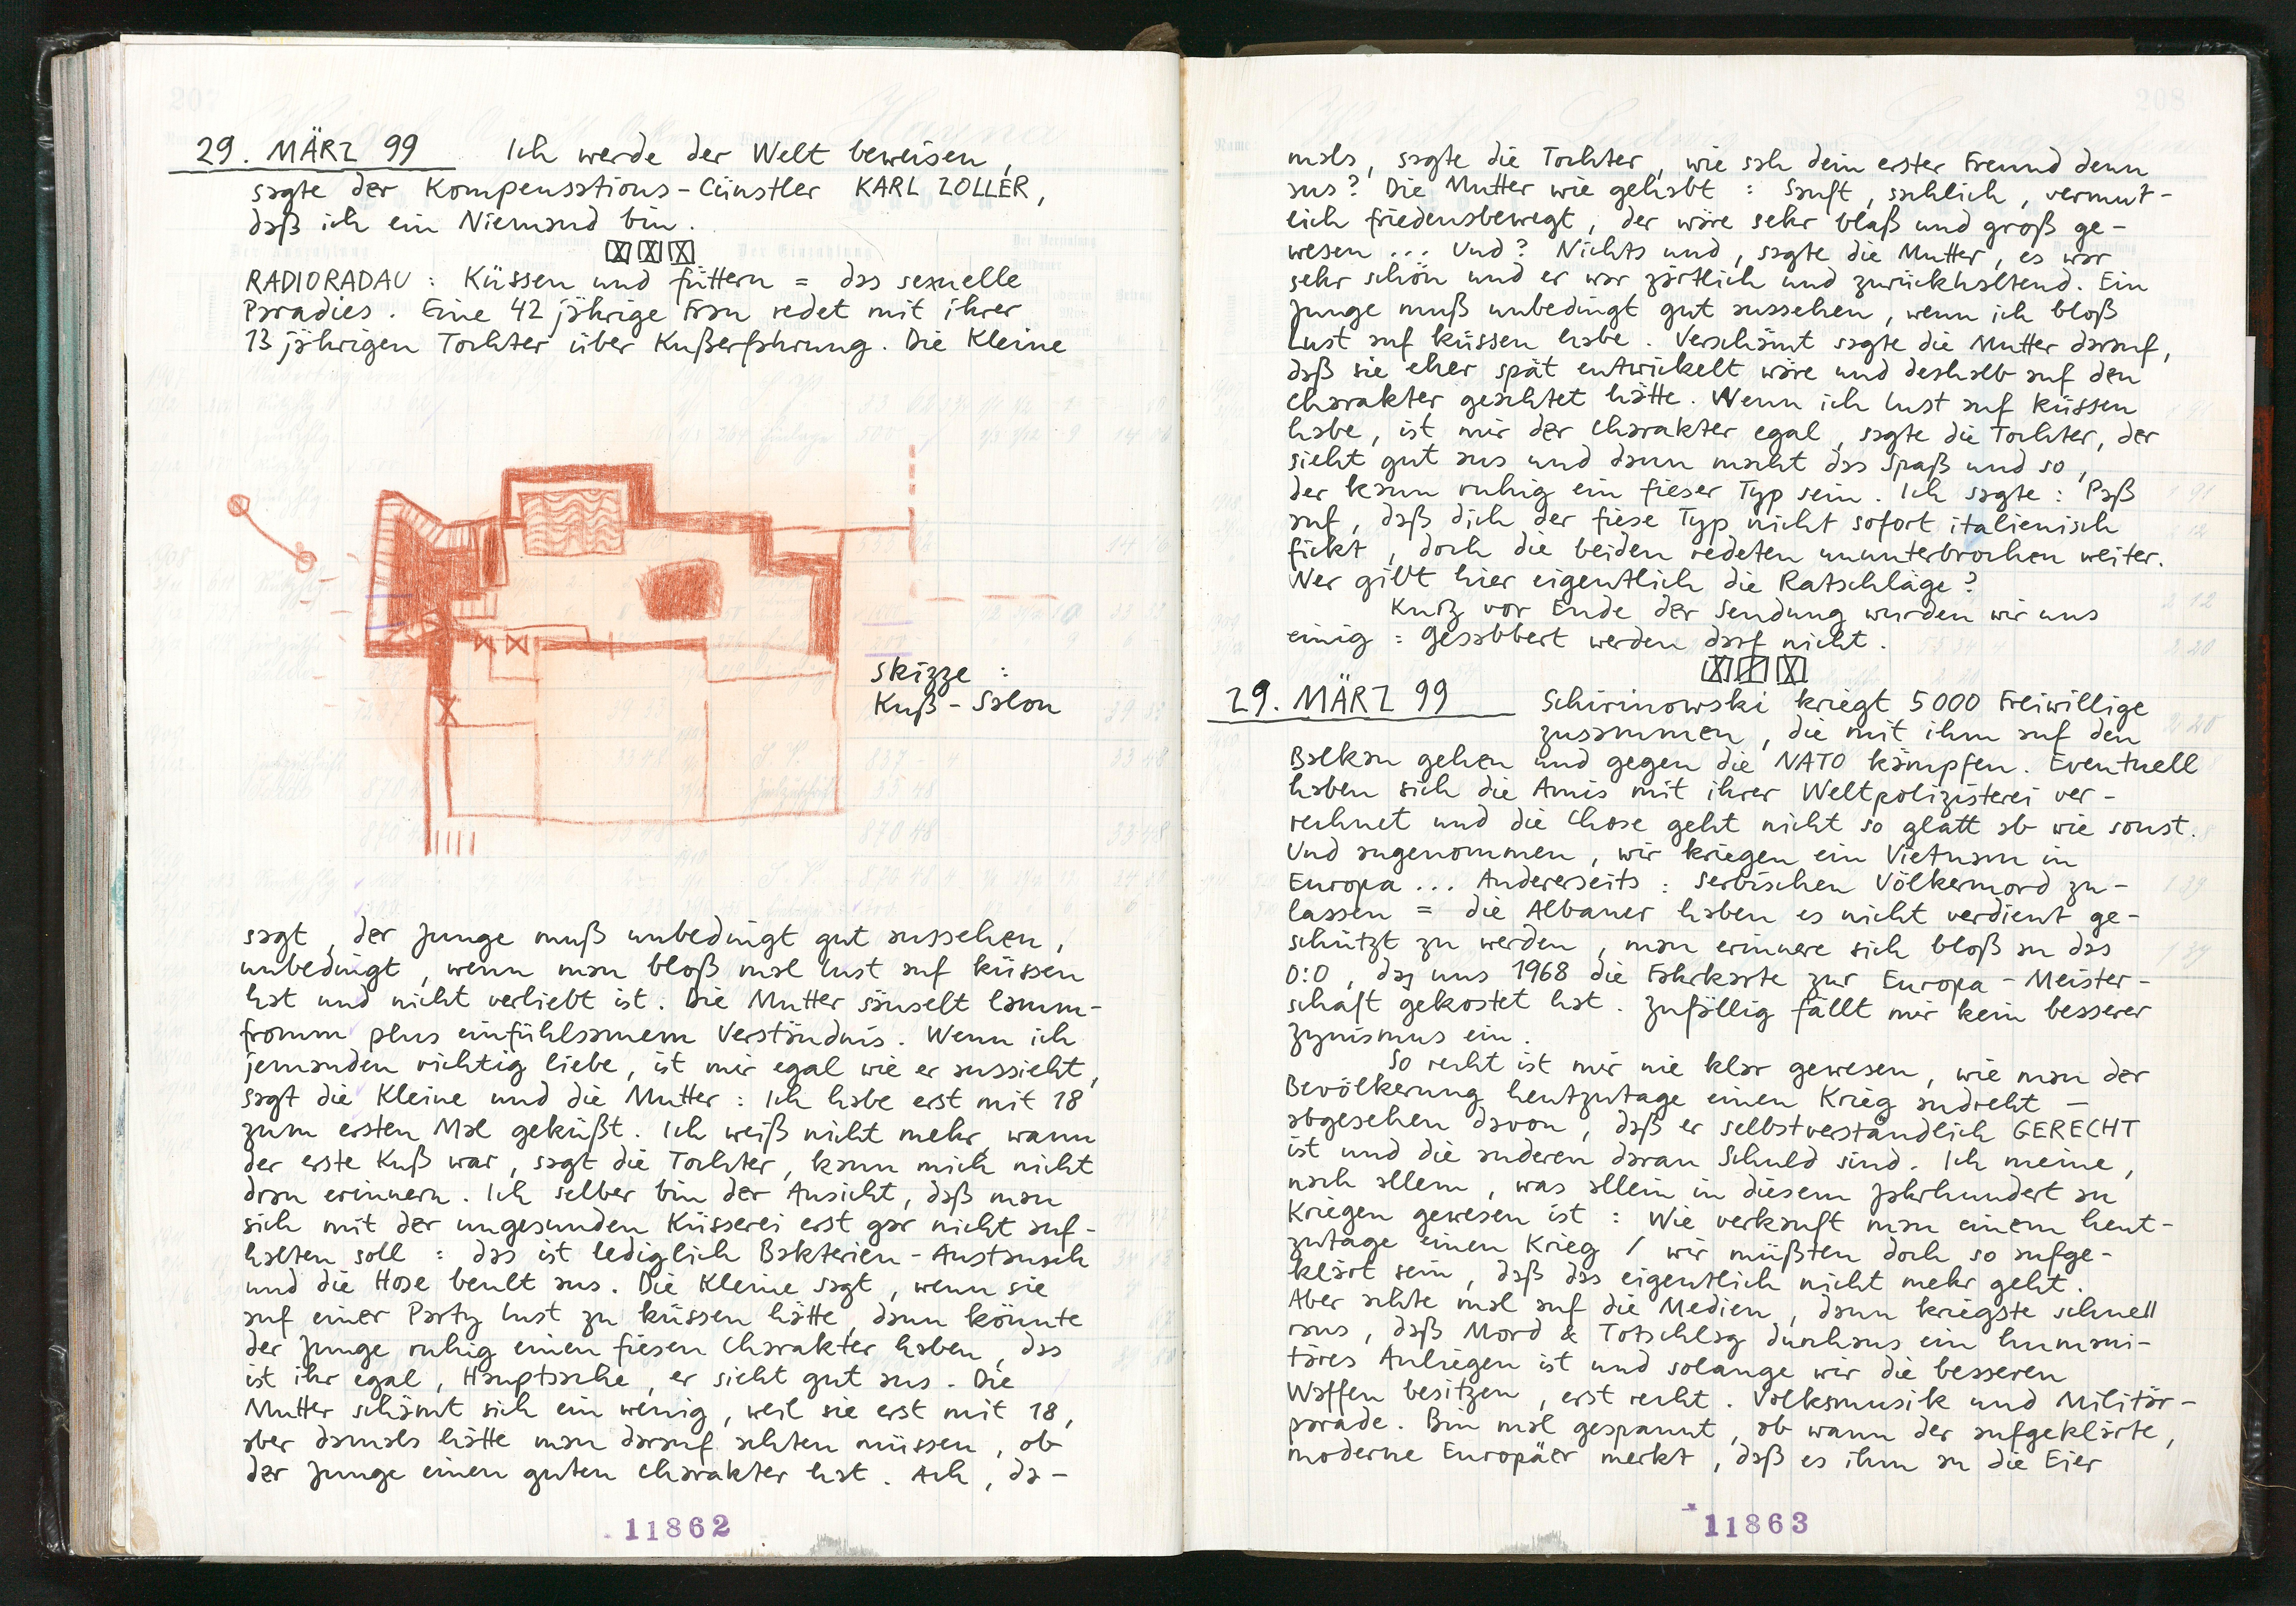 29. MÄRZ 99 Ich werde der Welt beweisen,
sagte der Kompensations-Cünstler KARL ZOLLER,
daß ich ein Niemand bin.
RADIORADAU : Küssen und füttern = das sexuelle
Paradies. Eine 42 jährige Frau redet mit ihrer
13 jährigen Tochter über Kußerfahrung. Die Kleine
Skizze :
Kuß-Salon
sagt, der Junge muß unbedingt gut aussehen,
unbedingt, wenn man bloß mal Lust auf küssen
hat und nicht verliebt ist. Die Mutter säuselt lamm-
fromm plus einfühlsamem Verständnis. Wenn ich
jemanden richtig liebe, ist mir egal wie er aussieht,
sagt die Kleine und die Mutter : Ich habe erst mit 18
zum ersten Mal geküßt. Ich weiß nicht mehr, wann
der erste Kuß war, sagt die Tochter, kann mich nicht
dran erinnern. Ich selber bin der Ansicht, daß man
sich mit der ungesunden Küsserei erst gar nicht auf-
halten soll : das ist lediglich Bakterien-Austausch
und die Hose beult aus. Die Kleine sagt, wenn sie
auf einer Party Lust zu küssen hätte, dann könnte
der Junge ruhig einen fiesen Charakter haben, das
ist ihr egal, Hauptsache, er sieht gut aus. Die
Mutter schämt sich ein wenig, weil sie erst mit 18,
aber damals hätte man darauf achten müssen, ob
der Junge einen guten Charakter hat. Ach, da-
11862
mals, sagte die Tochter, wie sah dein erster Freund denn
aus? Die Mutter wie gehabt : Sanft, sachlich, vermut-
lich friedensbewegt, der wäre sehr blaß und groß ge-
wesen ... Und? Nichts und, sagte die Mutter, es war
sehr schön und er war zärtlich und zurückhaltend. Ein
Junge muß unbedingt gut aussehen, wenn ich bloß
Lust auf küssen habe. Verschämt sagte die Mutter darauf,
daß sie eher spät entwickelt wäre und deshalb auf den
Charakter geachtet hätte. Wenn ich Lust auf küssen
habe, ist mir der Charakter egal, sagte die Tochter, der
sieht gut aus und dann macht das Spaß und so,
der kann ruhig ein fieser Typ sein. Ich sagte : Paß
auf, daß dich der fiese Typ nicht sofort italienisch
fickt, doch die beiden redeten ununterbrochen weiter.
Wer gibt hier eigentlich die Ratschläge?
Kurz vor Ende der Sendung wurden wir uns
einig : Gesabbert werden darf nicht.
29. MÄRZ 99 Schirinowski kriegt 5000 Freiwillige
zusammen, die mit ihm auf den
Balkan gehen und gegen die NATO kämpfen. Eventuell
haben sich die Amis mit ihrer Weltpolizisterei ver-
rechnet und die Chose geht nicht so glatt ab wie sonst.
Und angenommen, wir kriegen ein Vietnam in
Europa ... Andererseits : Serbischen Völkermord zu-
lassen = die Albaner haben es nicht verdient ge-
schützt zu werden, man erinnere sich bloß an das
0:0, das uns 1968 die Fahrkarte zur Europa-Meister-
schaft gekostet hat. Zufällig fällt mir kein besserer
Zynismus ein.
So recht ist mir nie klar gewesen, wie man der
Bevölkerung heutzutage einen Krieg andreht –
abgesehen davon, daß er selbstverständlich GERECHT
ist und die anderen daran Schuld sind. Ich meine,
nach allem, was allein in diesem Jahrhundert an
Kriegen gewesen ist : Wie verkauft man einem heut-
zutage einen Krieg / wir müßten doch so aufge-
klärt sein, daß das eigentlich nicht mehr geht.
Aber achte mal auf die Medien, dann kriegste schnell
raus, daß Mord & Totschlag durchaus ein humani-
täres Anliegen ist und solange wir die besseren
Waffen besitzen, erst recht. Volksmusik und Militär-
parade. Bin mal gespannt, ab wann der aufgeklärte,
moderne Europäer merkt, daß es ihm an die Eier
11863